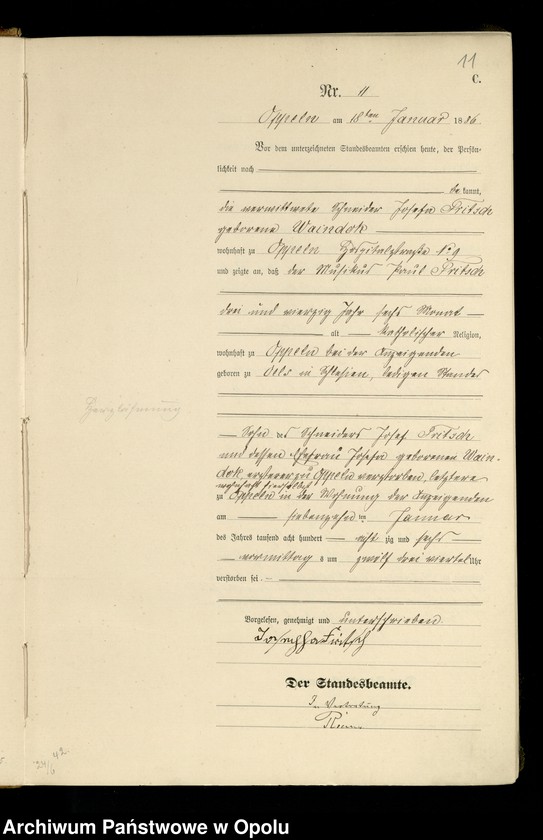 11
C.
Nr. 11
Oppeln am 18ten Januar 1886
Vor dem unterzeichneten Standesbeamten erschien heute, der Persön-
lichkeit nach
be kannt,
die verwittwete Schneider Josefa Fritsch
geborene Waindok
wohnhaft zu Oppeln Hospitalstraße No 9
und zeigte an, daß der Musikus Paul Fritsch
drei und vierzig Jahr sechs Monat
alt katholischer Religion,
wohnhaft zu Oppeln bei der Anzeigenden
geboren zu Oels in Schlesien, ledigen Standes
Herzlähmung
Sohn des Schneiders Josef Fritsch
und dessen Ehefrau Josefa geborenen Wain-
dok, ersterer zu Oppeln verstorben, letztere
wohnhaft hierselbst
zu Oppeln in der Wohnung der Anzeigenden
am siebenzehnten Januar
des Jahres tausend acht hundert acht zig und sechs
vormittag s um zwölf drei viertel Uhr
verstorben sei.
Vorgelesen, genehmigt und unterschrieben
Josepha Fritsch
Der Standesbeamte.
In Vertretung
24/6 42.
Archiwum Państwowe w Opolu